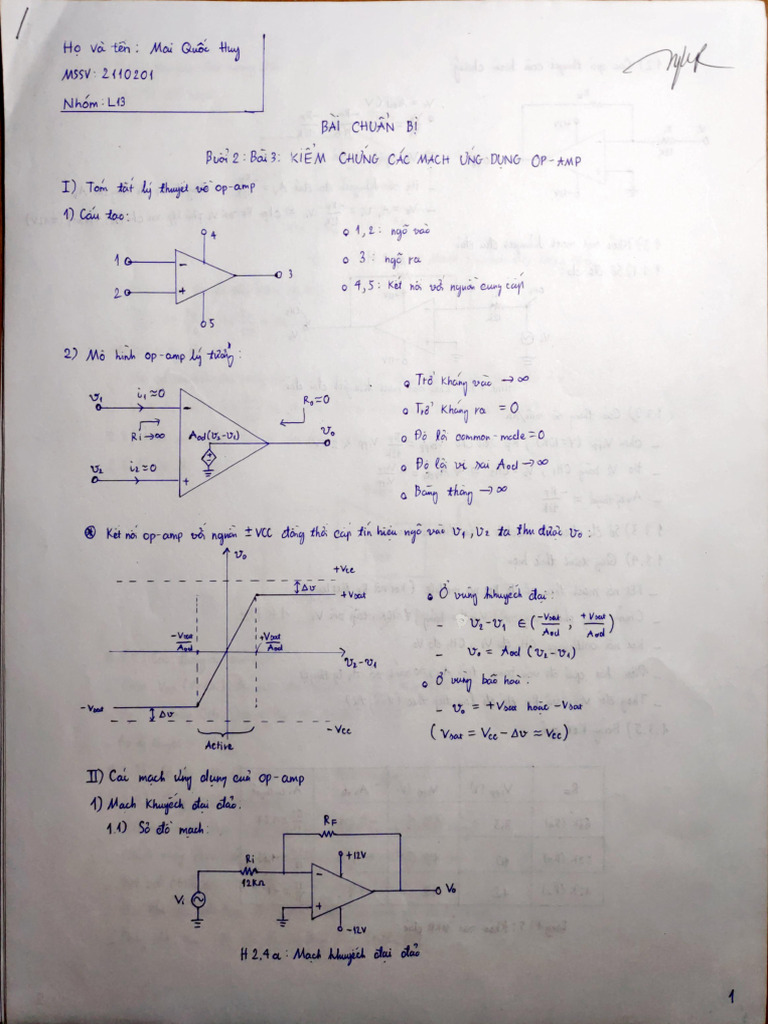 Họ và tên: Mai Quốc Huy
MSSV: 2110201
Nhóm: L13
BÀI CHUẨN BỊ
Buổi 2: Bài 3: KIỂM CHỨNG CÁC MẠCH ỨNG DỤNG OP-AMP
I) Tóm tắt lý thuyết về op-amp
1) Cấu tạo:
4
1
-
3
2
+
5
1,2: ngõ vào
3: ngõ ra
4,5: Kết nối với nguồn cung cấp
2) Mô hình op-amp lý tưởng:
v1 i1≈0 -
Ri→∞
Aod(v2-v1)
Ro=0
vo
v2 i2≈0 +
Trở kháng vào →∞
Trở kháng ra = 0
Độ lợi common-mode=0
Độ lợi vi sai Aod→∞
Băng thông →∞
* Kết nối op-amp với nguồn ±VCC đồng thời cấp tín hiệu ngõ vào v1,v2 ta thu được vo:
vo
+Vcc
Δv
+Vsat
-Vsat/Aod
+Vsat/Aod
v2-v1
-Vsat
Δv
-Vcc
Active
Ở vùng khuyếch đại:
- v2-v1 ∈(-Vsat/Aod, +Vsat/Aod)
- vo = Aod (v2-v1)
Ở vùng bão hoà:
- vo = +Vsat hoặc -Vsat
(Vsat = Vcc - Δv ≈ Vcc)
II) Các mạch ứng dụng của op-amp
1) Mạch khuyếch đại đảo:
1.1) Sơ đồ mạch:
RF
Ri
12KΩ
+12V
-
Vi
+
Vo
-12V
H 2.4a: Mạch khuyếch đại đảo
1